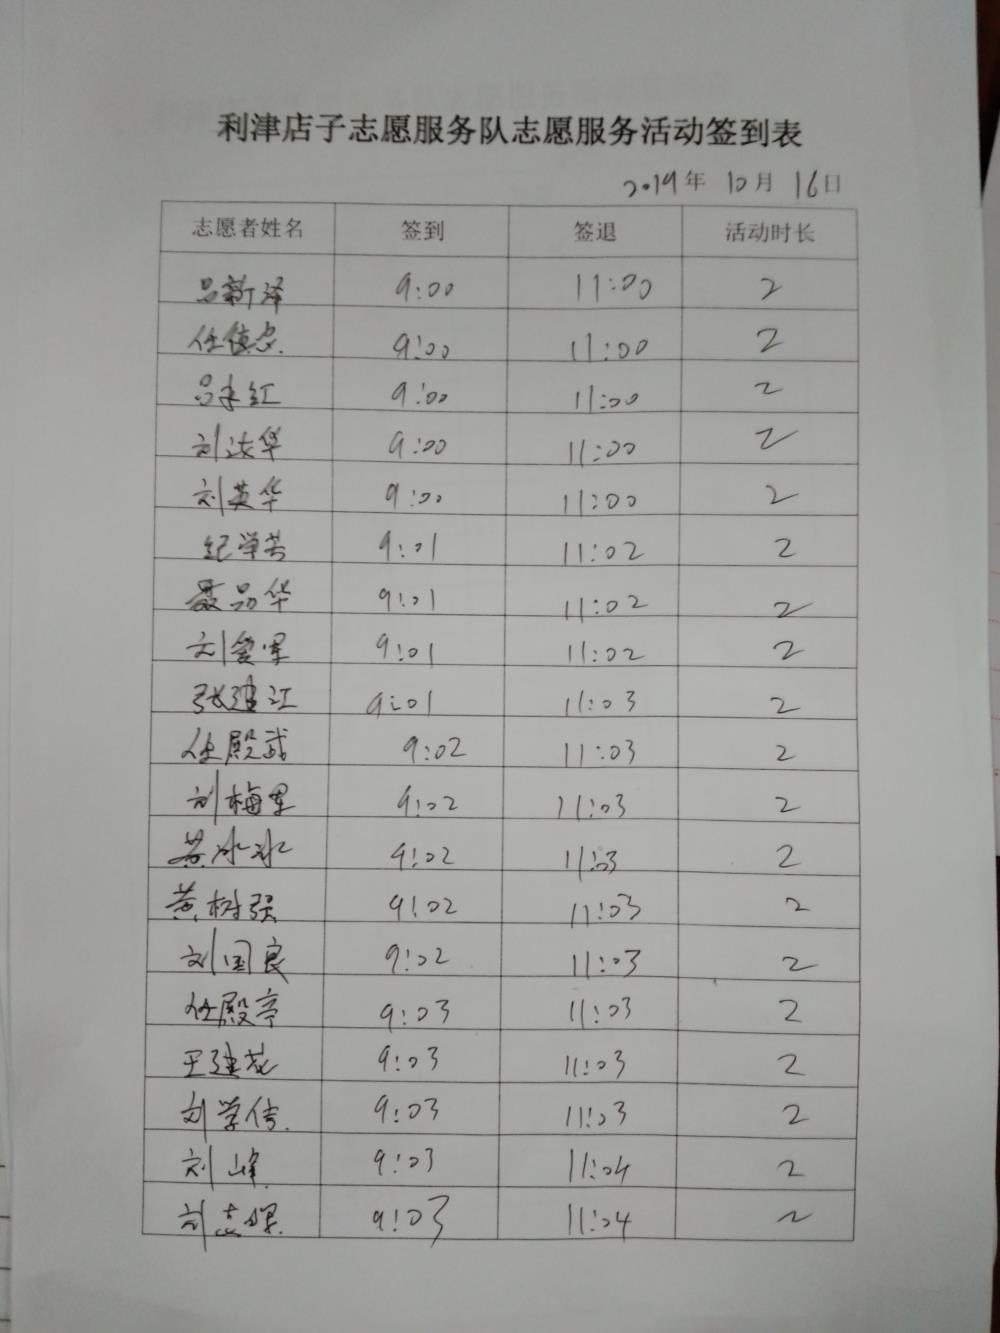 利津店子志愿服务队志愿服务活动签到表
2019年 10月 16日
志愿者姓名 签到 签退 活动时长
吕新泽 9:00 11:00 2
任俊忠 9:00 11:00 2
吕永红 9:00 11:00 2
刘法华 9:00 11:00 2
刘英华 9:00 11:00 2
纪学芳 9:01 11:02 2
聂品华 9:01 11:02 2
刘爱军 9:01 11:02 2
张建江 9:01 11:03 2
任殿武 9:02 11:03 2
刘梅军 9:02 11:03 2
黄冰冰 9:02 11:03 2
黄树强 9:02 11:03 2
刘国良 9:02 11:03 2
任殿亭 9:03 11:03 2
王建花 9:03 11:03 2
刘学信 9:03 11:03 2
刘峰 9:03 11:04 2
刘志 9:03 11:04 2